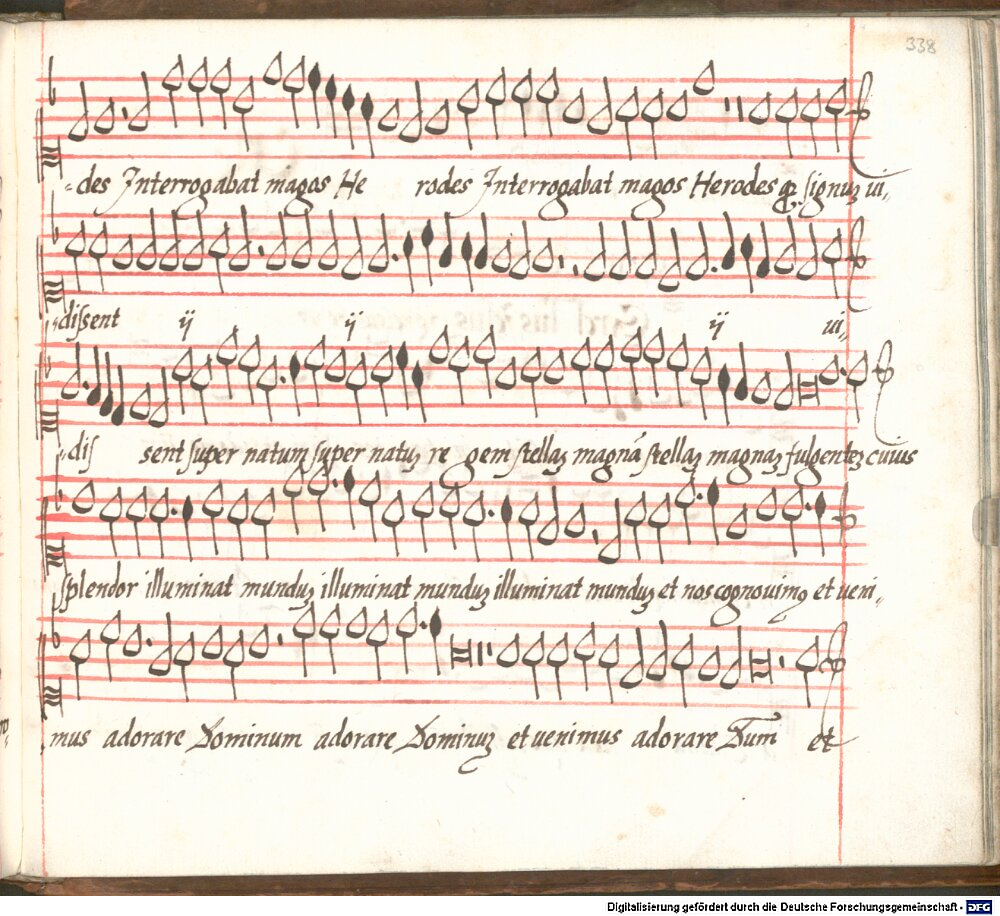 338
-des Interrogabat magos He rodes Interrogabat magos Herodes qꝫ signuꝫ ui-
-dissent ij ij ij ui-
-dis sent super natum super natuꝫ re gem stellaꝫ magnā stellaꝫ magnaꝫ fulgenteꝫ cuius
splendor illuminat munduꝫ illuminat munduꝫ illuminat munduꝫ et nos cognouimꝰ et veni-
mus adorare Dominum adorare Dominuꝫ et uenimus adorare Dum et
Digitalisierung gefördert durch die Deutsche Forschungsgemeinschaft - DFG